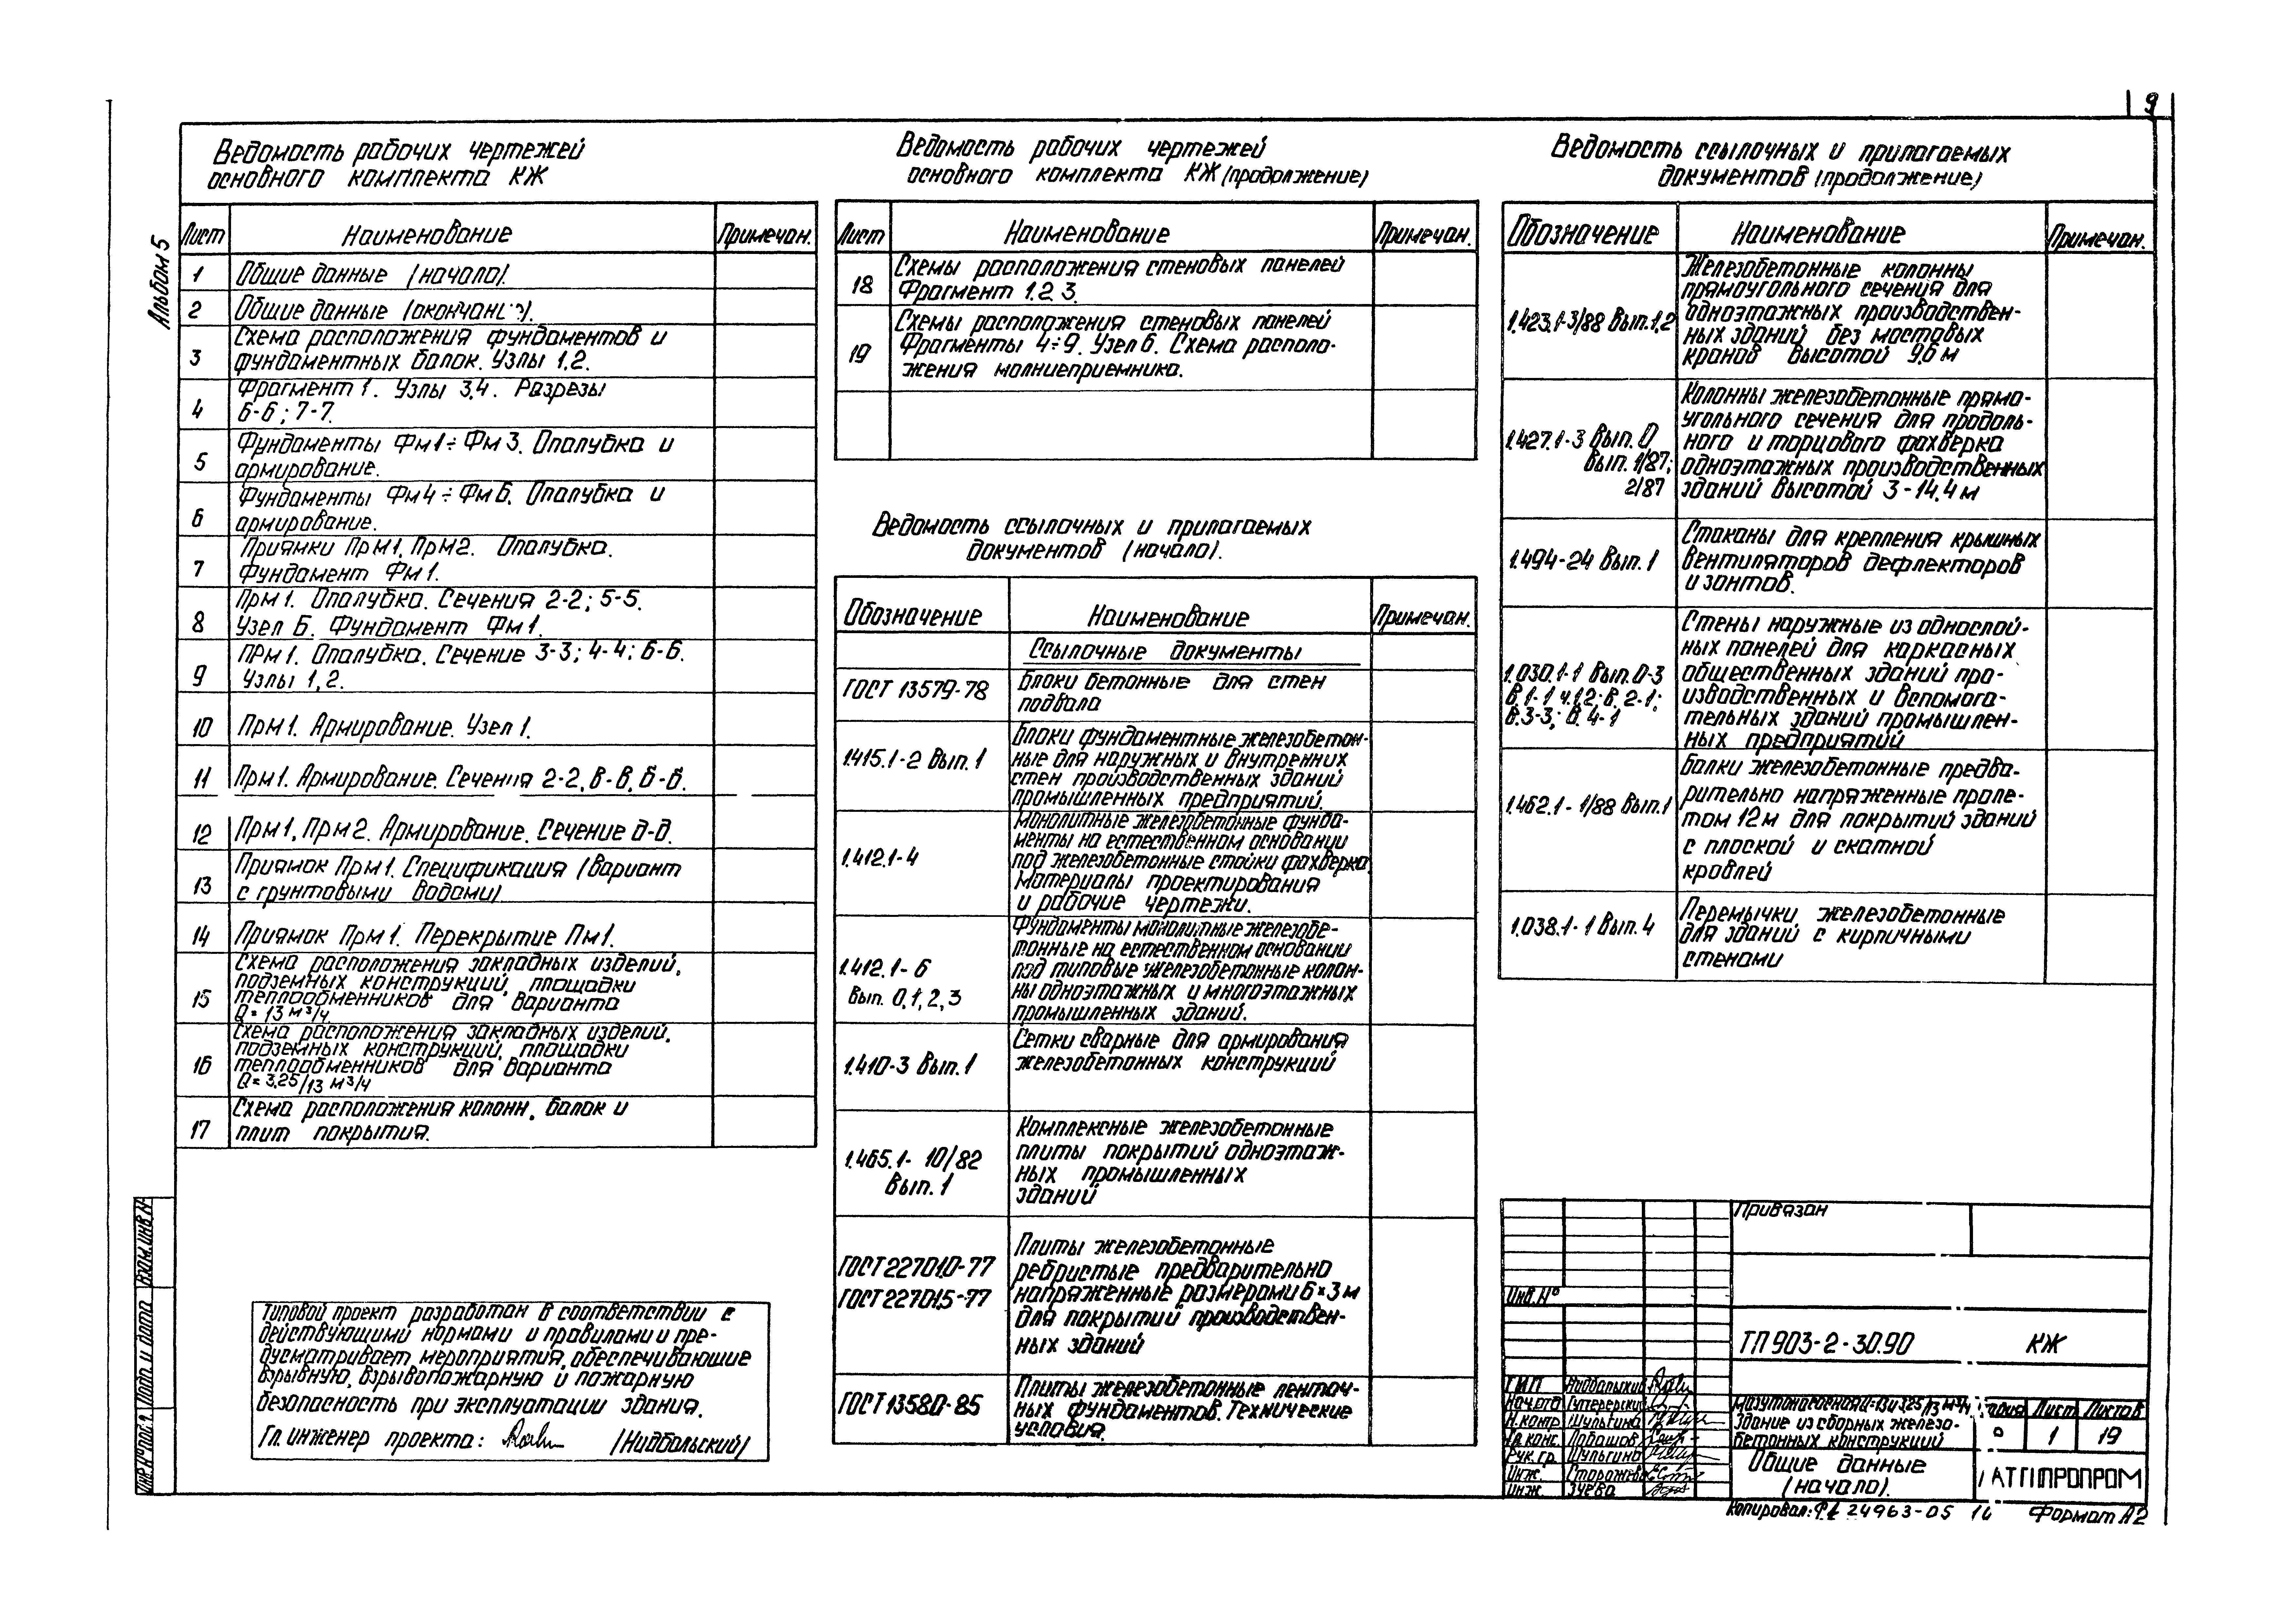 9
Альбом 5
Ведомость рабочих чертежей
основного комплекта КЖ
Лист Наименование Примечан.
1 Общие данные (начало).
2 Общие данные
3 Схема расположения фундаментов и
фундаментных балок. Узлы 1,2.
4 Фрагмент 1. Узлы 3,4. Разрезы
6-6; 7-7.
5 Фундаменты Фм1÷Фм3. Опалубка и
армирование.
6 Фундаменты Фм4÷Фм6. Опалубка и
армирование.
7 Приямки Прм1, Прм2. Опалубка.
Фундамент Фм1.
8 Прм1. Опалубка. Сечения 2-2; 5-5.
Узел Б. Фундамент Фм1.
9 Прм1. Опалубка. Сечение 3-3; 4-4; 6-6.
Узлы 1,2.
10 Прм1. Армирование. Узел 1.
11 Прм1. Армирование. Сечения 2-2, в-в, б-б.
12 Прм1, Прм2. Армирование. Сечение д-д.
13 Приямок Прм1. Спецификация (вариант
с грунтовыми водами)
14 Приямок Прм1. Перекрытие Пм1.
15 Схема расположения закладных изделий,
подземных конструкций, площадки
теплообменников для варианта
Q=13 м³/ч.
16 Схема расположения закладных изделий,
подземных конструкций, площадки
теплообменников для варианта
Q=3,25/13 м³/ч
17 Схема расположения колонн, балок и
плит покрытия.
Типовой проект разработан в соответствии с
действующими нормами и правилами и пре-
дусматривает мероприятия, обеспечивающие
взрывную, взрывопожарную и пожарную
безопасность при эксплуатации здания.
Гл. инженер проекта: (Нидбальский)
Ведомость рабочих чертежей
основного комплекта КЖ (продолжение)
Лист Наименование Примечан.
18 Схемы расположения стеновых панелей
Фрагмент 1.2.3.
19 Схемы расположения стеновых панелей
Фрагменты 4÷9. Узел 6. Схема располо-
жения молниеприемника.
Ведомость ссылочных и прилагаемых
документов (начало).
Обозначение Наименование Примечан.
Ссылочные документы
ГОСТ 13579-78 Блоки бетонные для стен
подвала
1.415.1-2 Вып.1 Блоки фундаментные железобетон-
ные для наружных и внутренних
стен производственных зданий
промышленных предприятий.
1.412.1-4 Монолитные железобетонные фунда-
менты на естественном основании
под железобетонные стойки фахверка
Материалы проектирования
и рабочие чертежи.
1.412.1-6
Вып. 0,1,2,3 Фундаменты монолитные железобе-
тонные на естественном основании
под типовые железобетонные колон-
ны одноэтажных и многоэтажных
промышленных зданий.
1.410-3 Вып.1 Сетки сварные для армирования
железобетонных конструкций
1.465.1-10/82
Вып.1 Комплексные железобетонные
плиты покрытий одноэтаж-
ных промышленных
зданий
ГОСТ 22701.0-77
ГОСТ 22701.5-77 Плиты железобетонные
ребристые предварительно
напряженные размерами 6×3 м
для покрытий производствен-
ных зданий
ГОСТ 13580-85 Плиты железобетонные ленточ-
ных фундаментов. Технические
условия.
Ведомость ссылочных и прилагаемых
документов (продолжение)
Обозначение Наименование Примечан.
1.423.1-3/88 Вып.1,2 Железобетонные колонны
прямоугольного сечения для
одноэтажных производствен-
ных зданий без мостовых
кранов высотой 9,6 м
1.427.1-3 Вып.0
Вып. 1/87;
2/87 Колонны железобетонные прямо-
угольного сечения для продоль-
ного и торцового фахверка
одноэтажных производственных
зданий высотой 3-14,4 м
1.494-24 Вып.1 Стаканы для крепления крышных
вентиляторов дефлекторов
и зонтов.
1.030.1-1 Вып.0-3
В.1-1 ч.1,2; В.2-1;
В.3-3; В.4-1 Стены наружные из однослой-
ных панелей для каркасных
общественных зданий про-
изводственных и вспомога-
тельных зданий промышлен-
ных предприятий
1.462.1-1/88 Вып.1 Балки железобетонные предва-
рительно напряженные проле-
том 12 м для покрытий зданий
с плоской и скатной
кровлей
1.038.1-1 Вып.4 Перемычки железобетонные
для зданий с кирпичными
стенами
Привязан
Инв. №
ТП 903-2-30.90 КЖ
ГИП Нидбальский
Нач.отд
Н.контр Шульгина
Гл.конс. Лобашов
Рук.гр. Шульгина
Инж.
Инж. Зуева
здание из сборных железо-
бетонных конструкций
Лист Листов
1 19
Общие данные
(начало).
Копировал: 24963-05 Формат А2
Взам.инв.№
Подп. и дата
Инв.№ подл.